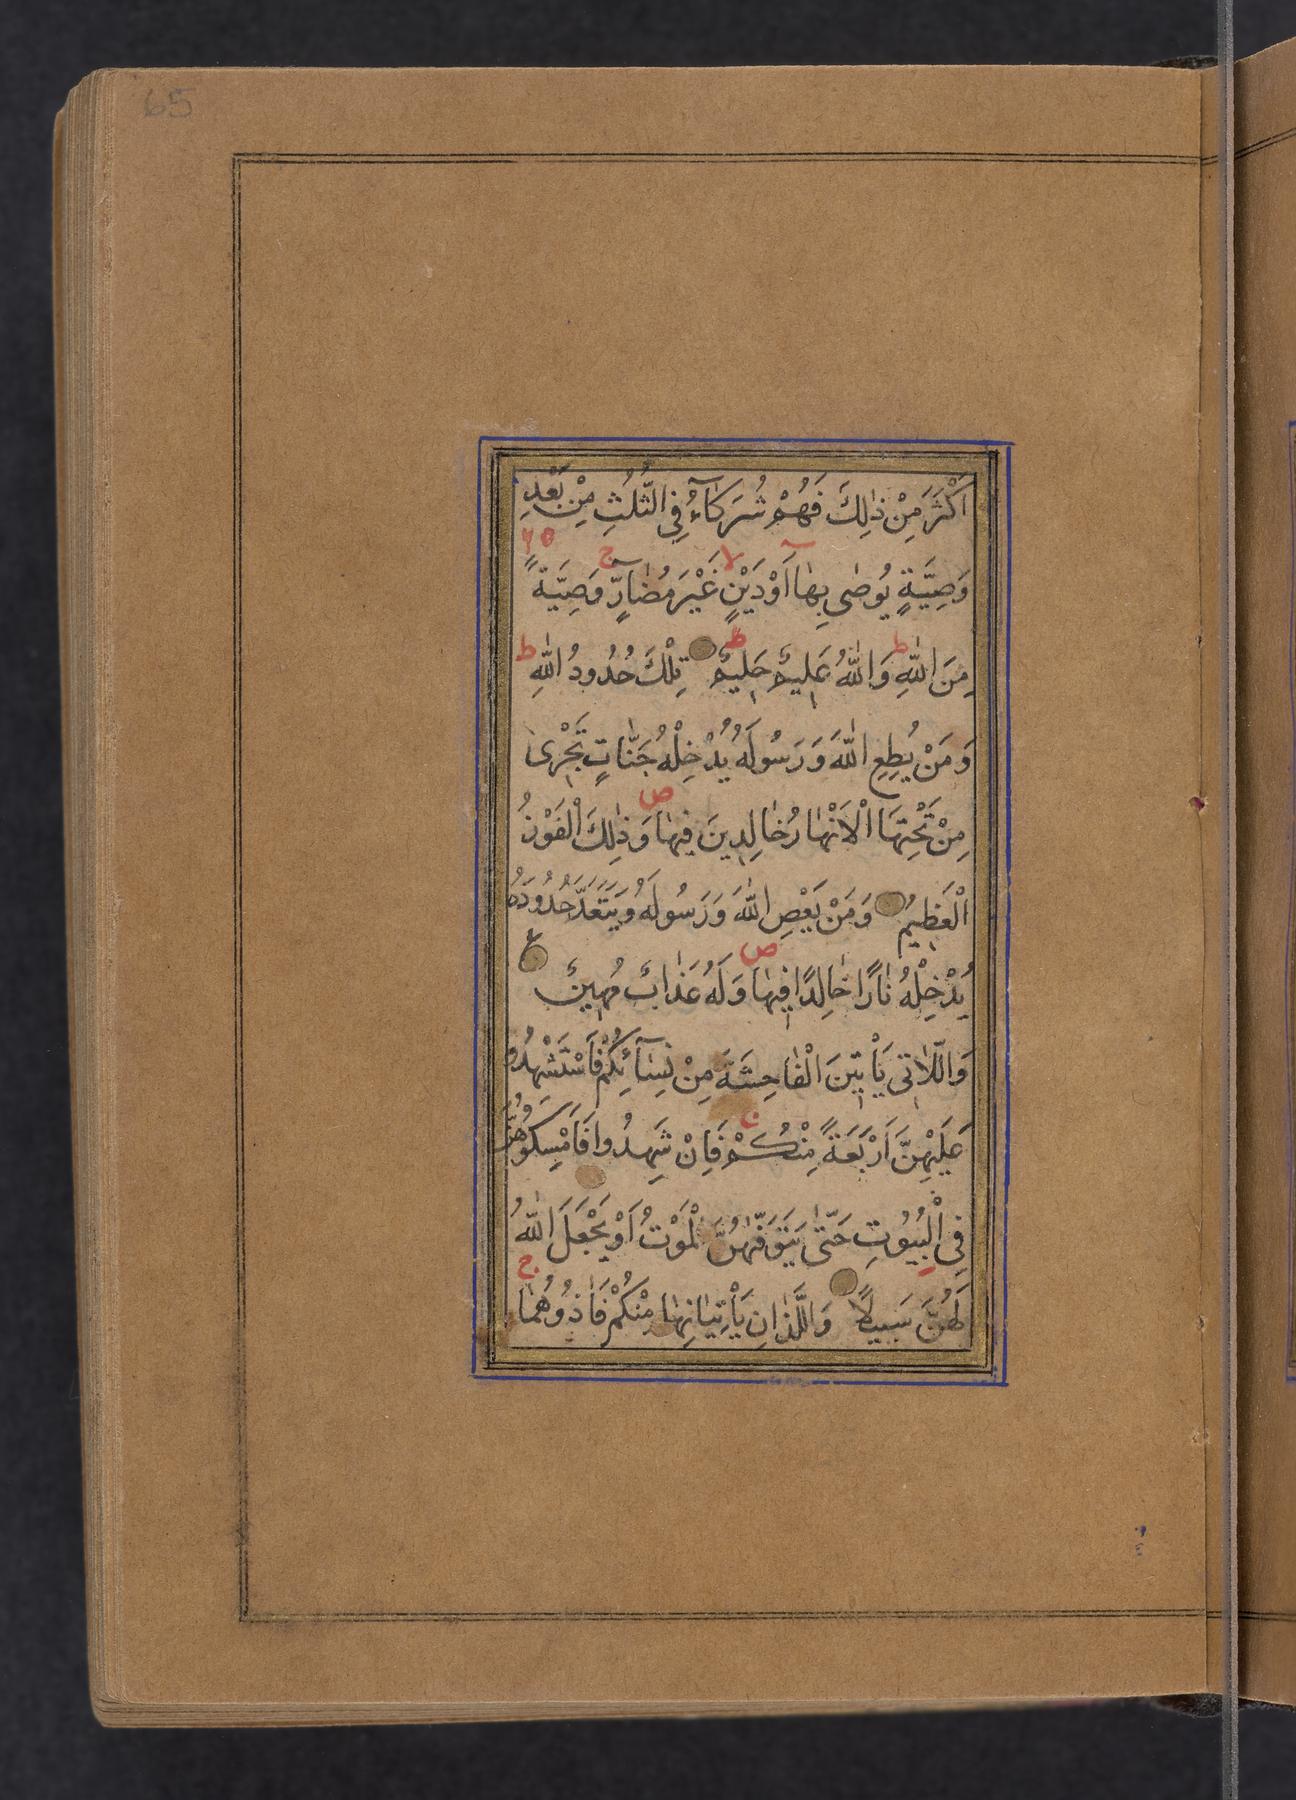 65
اَكْثَرَ مِنْ ذٰلِكَ فَهُمْ شُرَكَآءُ فِى الثُّلُثِ مِنْ بَعْدِ
وَصِيَّةٍ يُوصٰى بِهَآ اَوْدَيْنٍ غَيْرَ مُضَآرٍّ وَصِيَّةً
مِنَ اللّٰهِ وَاللّٰهُ عَلِيمٌ حَلِيمٌ تِلْكَ حُدُودُ اللّٰهِ
وَمَنْ يُطِعِ اللّٰهَ وَرَسُولَهُ يُدْخِلْهُ جَنَّاتٍ تَجْرٖى
مِنْ تَحْتِهَا الْاَنْهَارُ خَالِدِينَ فِيهَا وَذٰلِكَ الْفَوْزُ
الْعَظِيمُ وَمَنْ يَعْصِ اللّٰهَ وَرَسُولَهُ وَيَتَعَدَّ حُدُودَهُ
يُدْخِلْهُ نَارًا خَالِدًا فِيهَا وَلَهُ عَذَابٌ مُهِينٌ
وَاللَّاتِى يَأْتِينَ الْفَاحِشَةَ مِنْ نِسَآئِكُمْ فَاسْتَشْهِدُو
عَلَيْهِنَّ اَرْبَعَةً مِنْكُمْ فَاِنْ شَهِدُوا فَاَمْسِكُوهُنَّ
فِى الْبُيُوتِ حَتّٰى يَتَوَفّٰهُنَّ الْمَوْتُ اَوْ يَجْعَلَ اللّٰهُ
لَهُنَّ سَبِيلًا وَاللَّذَانِ يَأْتِيَانِهَا مِنْكُمْ فَاٰذُوهُمَا